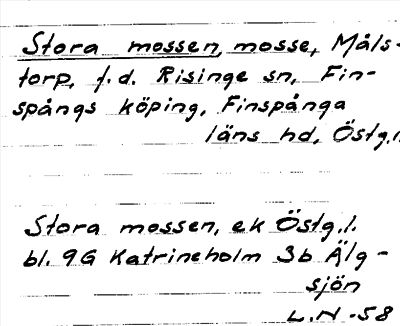 Stora mossen, mosse, Måls-
torp, f.d. Risinge sn, Fin-
spångs köping, Finspånga
läns hd, Östg.l.
Stora mossen, ek Östg.l.
bl. 9G Katrineholm 3b Älg-
sjön
L.N -58